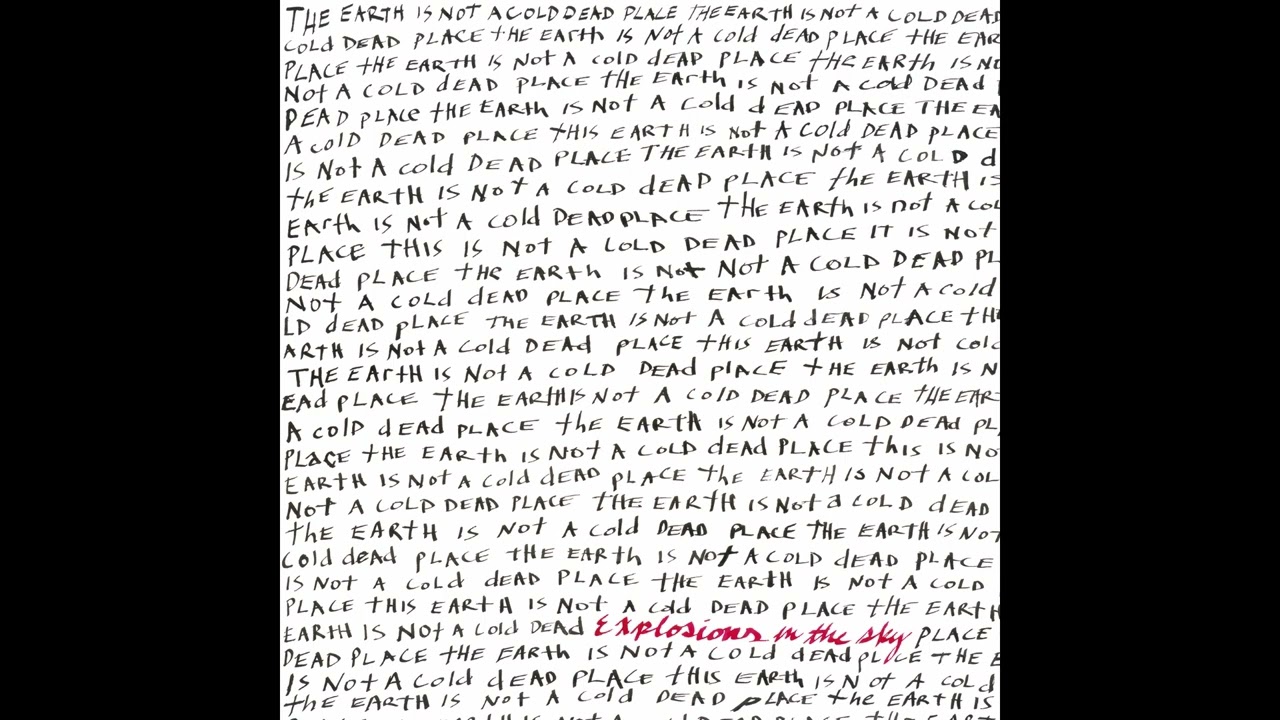 THE EARTH IS NOT A COLD DEAD PLACE THE EARTH IS NOT A COLD DEAD
Cold DEAD PLACE tHE EARth IS Not A Cold dEAD PLACE tHE EAR
PLACE tHE EARTH IS Not A cold dEAD PLACE tHE EARth IS No
Not A COLD dEAD PLACE tHE EArth IS Not A cold DEAD
DEAD place thE EARtH IS Not A Cold d EAD PLACE THE EA
A cOlD DEAD PLACE tHIS EARTH IS Not A Cold DEAD PLACE
IS Not A cold DEAD PLACE THE EARTH IS Not A COLD d
thE EARTH IS Not A COLD dEAD PLACE the EARTH IS
EARth IS Not A cold DEAD PLACE THE EARth IS not A COL
PLACE tHIS IS Not A COLD DEAD PLACE IT IS NOT
DEAd PLACE tHE EARth IS Not Not A COLD DEAD PL
Not A COLd dEAD PLACE the EARth IS Not A Cold
LD dEAD pLACE THE EARTH IS Not A Cold dEAD PLACE tHE
ARTH IS Not A Cold DEAd PLACE tHIS EARtH IS Not cold
THE EArtH IS Not A COLD DEAd plACE tHE EARth IS N
EAd PLACE tHE EARtH IS Not A COlD DEAD PLACE tHE EAR
A cOlD dEAD PLACE the EARtH IS Not A COLD DEAd PL
PLACE tHE EARth IS Not A COLD dead PLACE this IS No
EARtH IS Not A Cold dEAD PLACE the EARTH IS Not A COL
Not A COLD DEAD PLACE tHE EARTH IS Not a COLD dEAD
the EARTH IS Not A Cold DEAD PLACE THE EARTH IS Not
Cold dead PLACE tHE EARth IS Not A COLD dEAD PLACE
IS Not A Cold dEAD PLACE tHE EARtH IS Not A COLD
PLACE tHIS EARtH IS Not A cold DEAD PLACE tHE EARTH
EARtH IS Not A Cold DEAD Explosions in the sky PLACE
DEAD PLACE tHE EARth IS Not A COLD dEAd pLACE tHE E
IS Not A Cold dEAD PLACE tHIS EARth IS Not A COLd
thE EARTH IS Not A Cold DEAD pLACE tHe EARtH IS